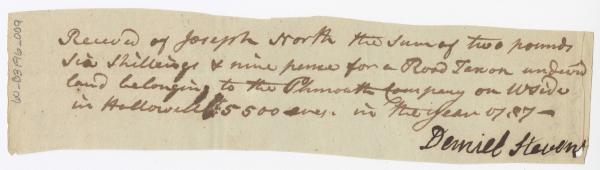 Received of Joseph North the Sum of two pounds
six shillings & nine pence for a Road Tax on undivid
land belonging to the Plymouth Company on W Side
in Hallowell 5500 acres. in the year 1787 –
Daniel Stevens